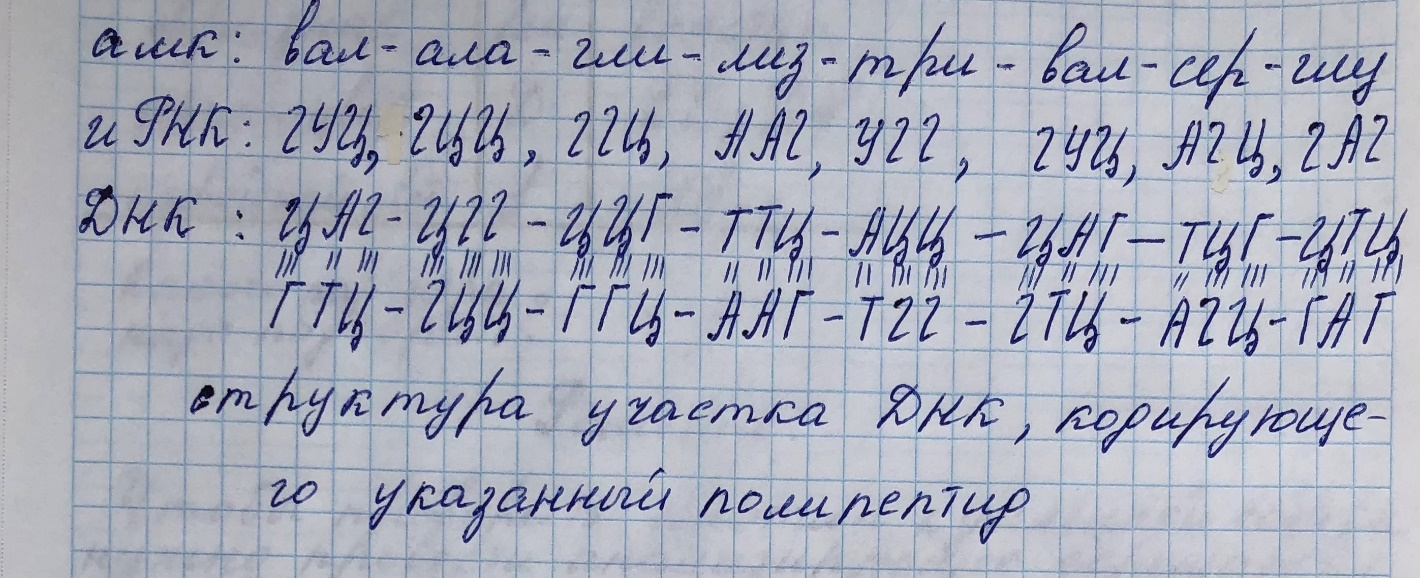 амк: вал- ала - гли - лиз - три - вал - сер - глу
иРНК: ГУЦ, ГЦЦ, ГГЦ, ААГ, УГГ, ГУЦ, АГЦ, ГАГ
ДНК: ЦАГ - ЦГГ - ЦЦГ - ТТЦ - АЦЦ - ЦАГ - ТЦГ - ЦТЦ
ГТЦ - ГЦЦ - ГГЦ - ААГ - ТГГ - ГТЦ - АГЦ - ГАГ
структура участка ДНК, кодирующе-
го указанный полипептид